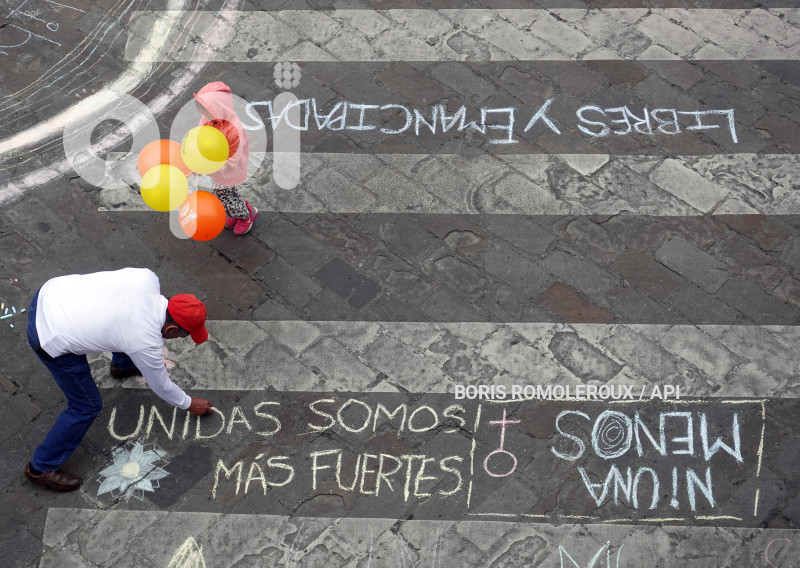 LIBRES Y EMANCIPADAS
api
BORIS ROMOLEROUX / API
UNIDAS SOMOS
MÁS FUERTES
NI UNA
MENOS